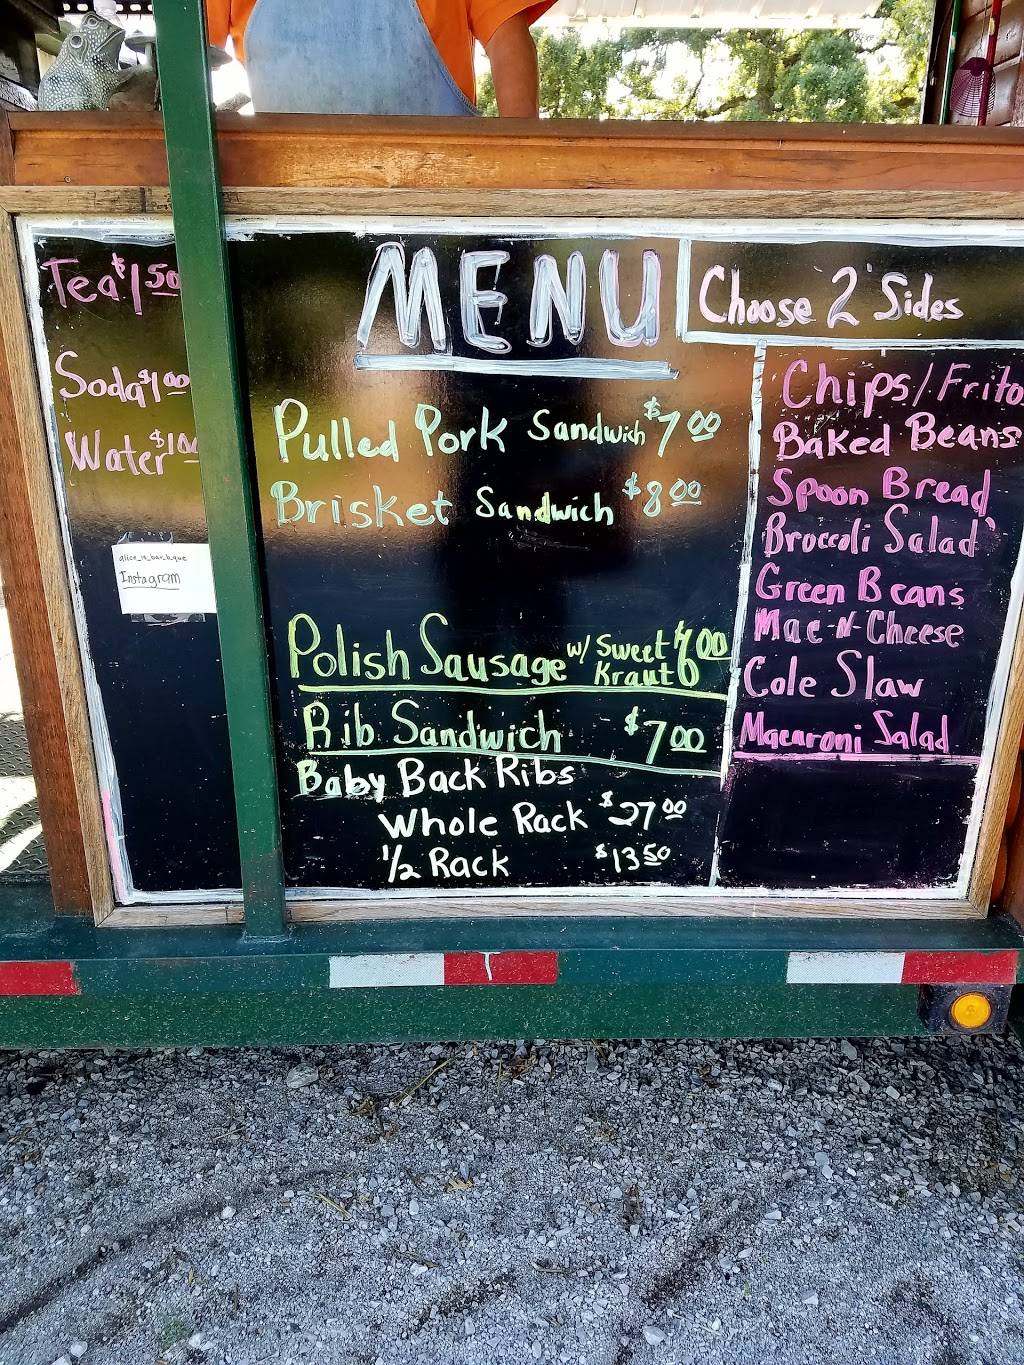 MENU
Tea $1.50
Soda $1.00
Water $1.00
alice_is_bar.b.que
Instagram
Pulled Pork Sandwich $7.00
Brisket Sandwich $8.00
Polish Sausage w/ Sweet Kraut
Rib Sandwich $7.00
Baby Back Ribs
Whole Rack $27.00
1/2 Rack $13.50
Choose 2 Sides
Chips/Frito
Baked Beans
Spoon Bread
Broccoli Salad
Green Beans
Mac-N-Cheese
Cole Slaw
Macaroni Salad